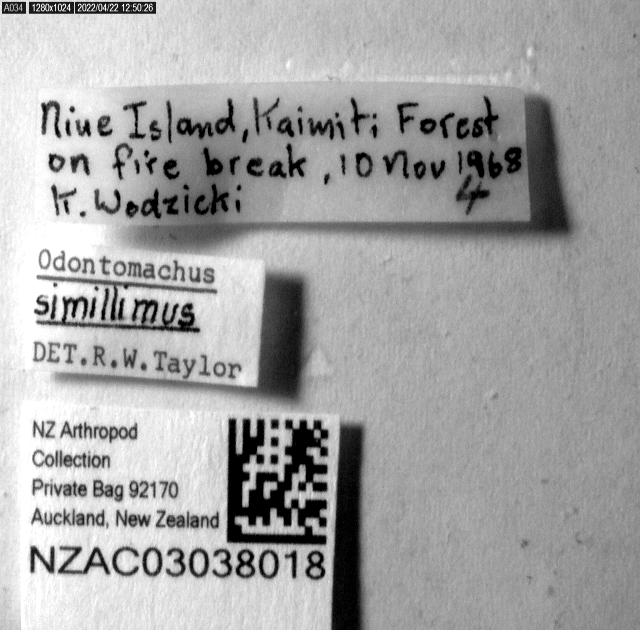 A034 1280x1024 2022/04/22 12:50:26
Niue Island, Kaimiti Forest
on fire break, 10 Nov 1968
K. Wodzicki 4
Odontomachus
simillimus
DET.R.W.Taylor
NZ Arthropod
Collection
Private Bag 92170
Auckland, New Zealand
NZAC03038018